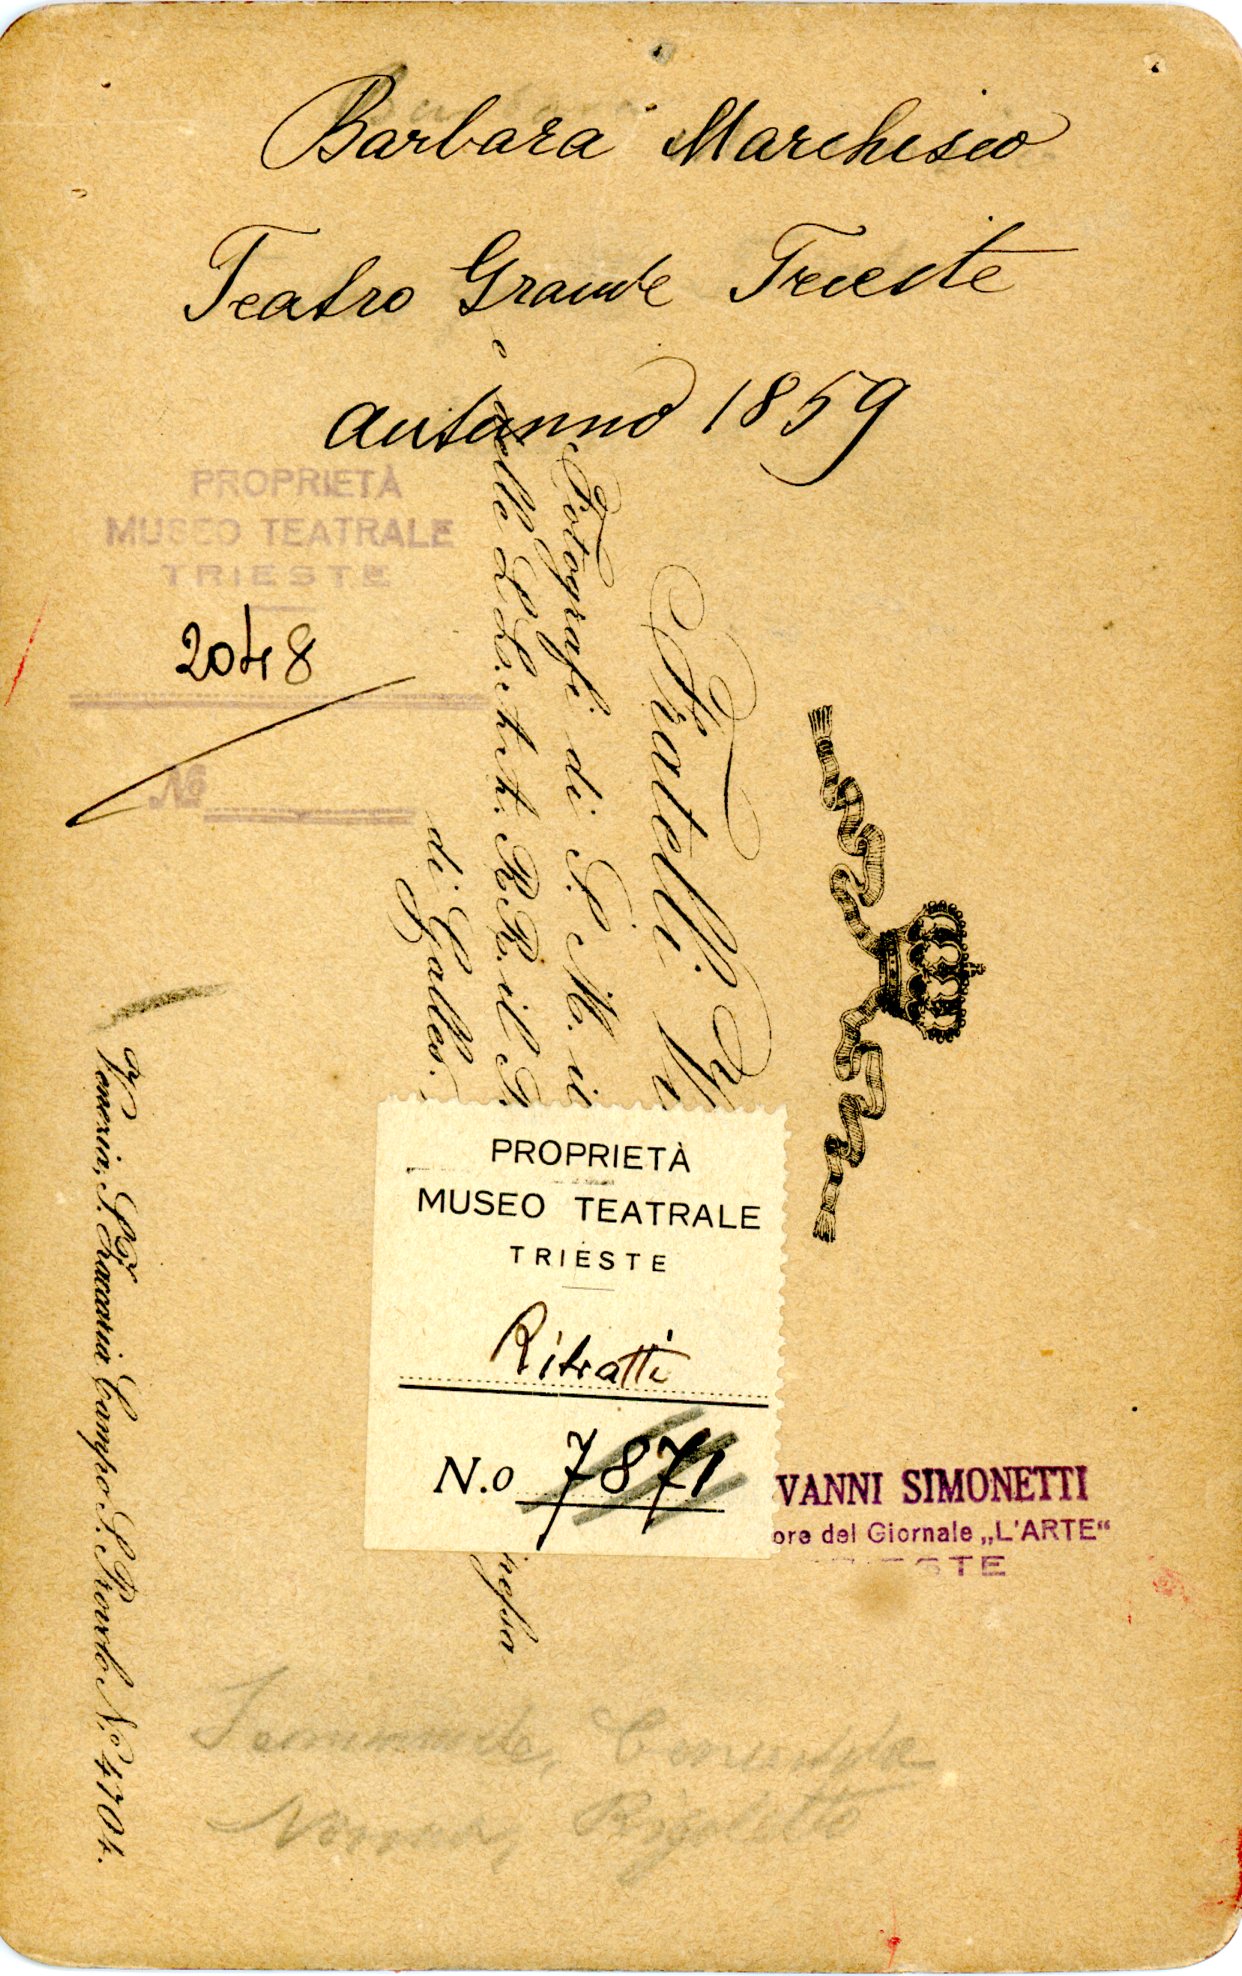 Barbara Marchisio
Teatro Grande Trieste
Autunno 1859
PROPRIETÀ
MUSEO TEATRALE
TRIESTE
2048
No
Fratelli
Fotografi di S. M. il
e delle LL. AA. RR. il
di Galles.
Venezia, SS. Zaccaria Campo S. Provolo No. 4704.
PROPRIETÀ
MUSEO TEATRALE
TRIESTE
Ritratti
N.o 7871
VANNI SIMONETTI
ore del Giornale „L'ARTE“
TRIESTE
Semiramide, Cenerentola
Norma, Rigoletto